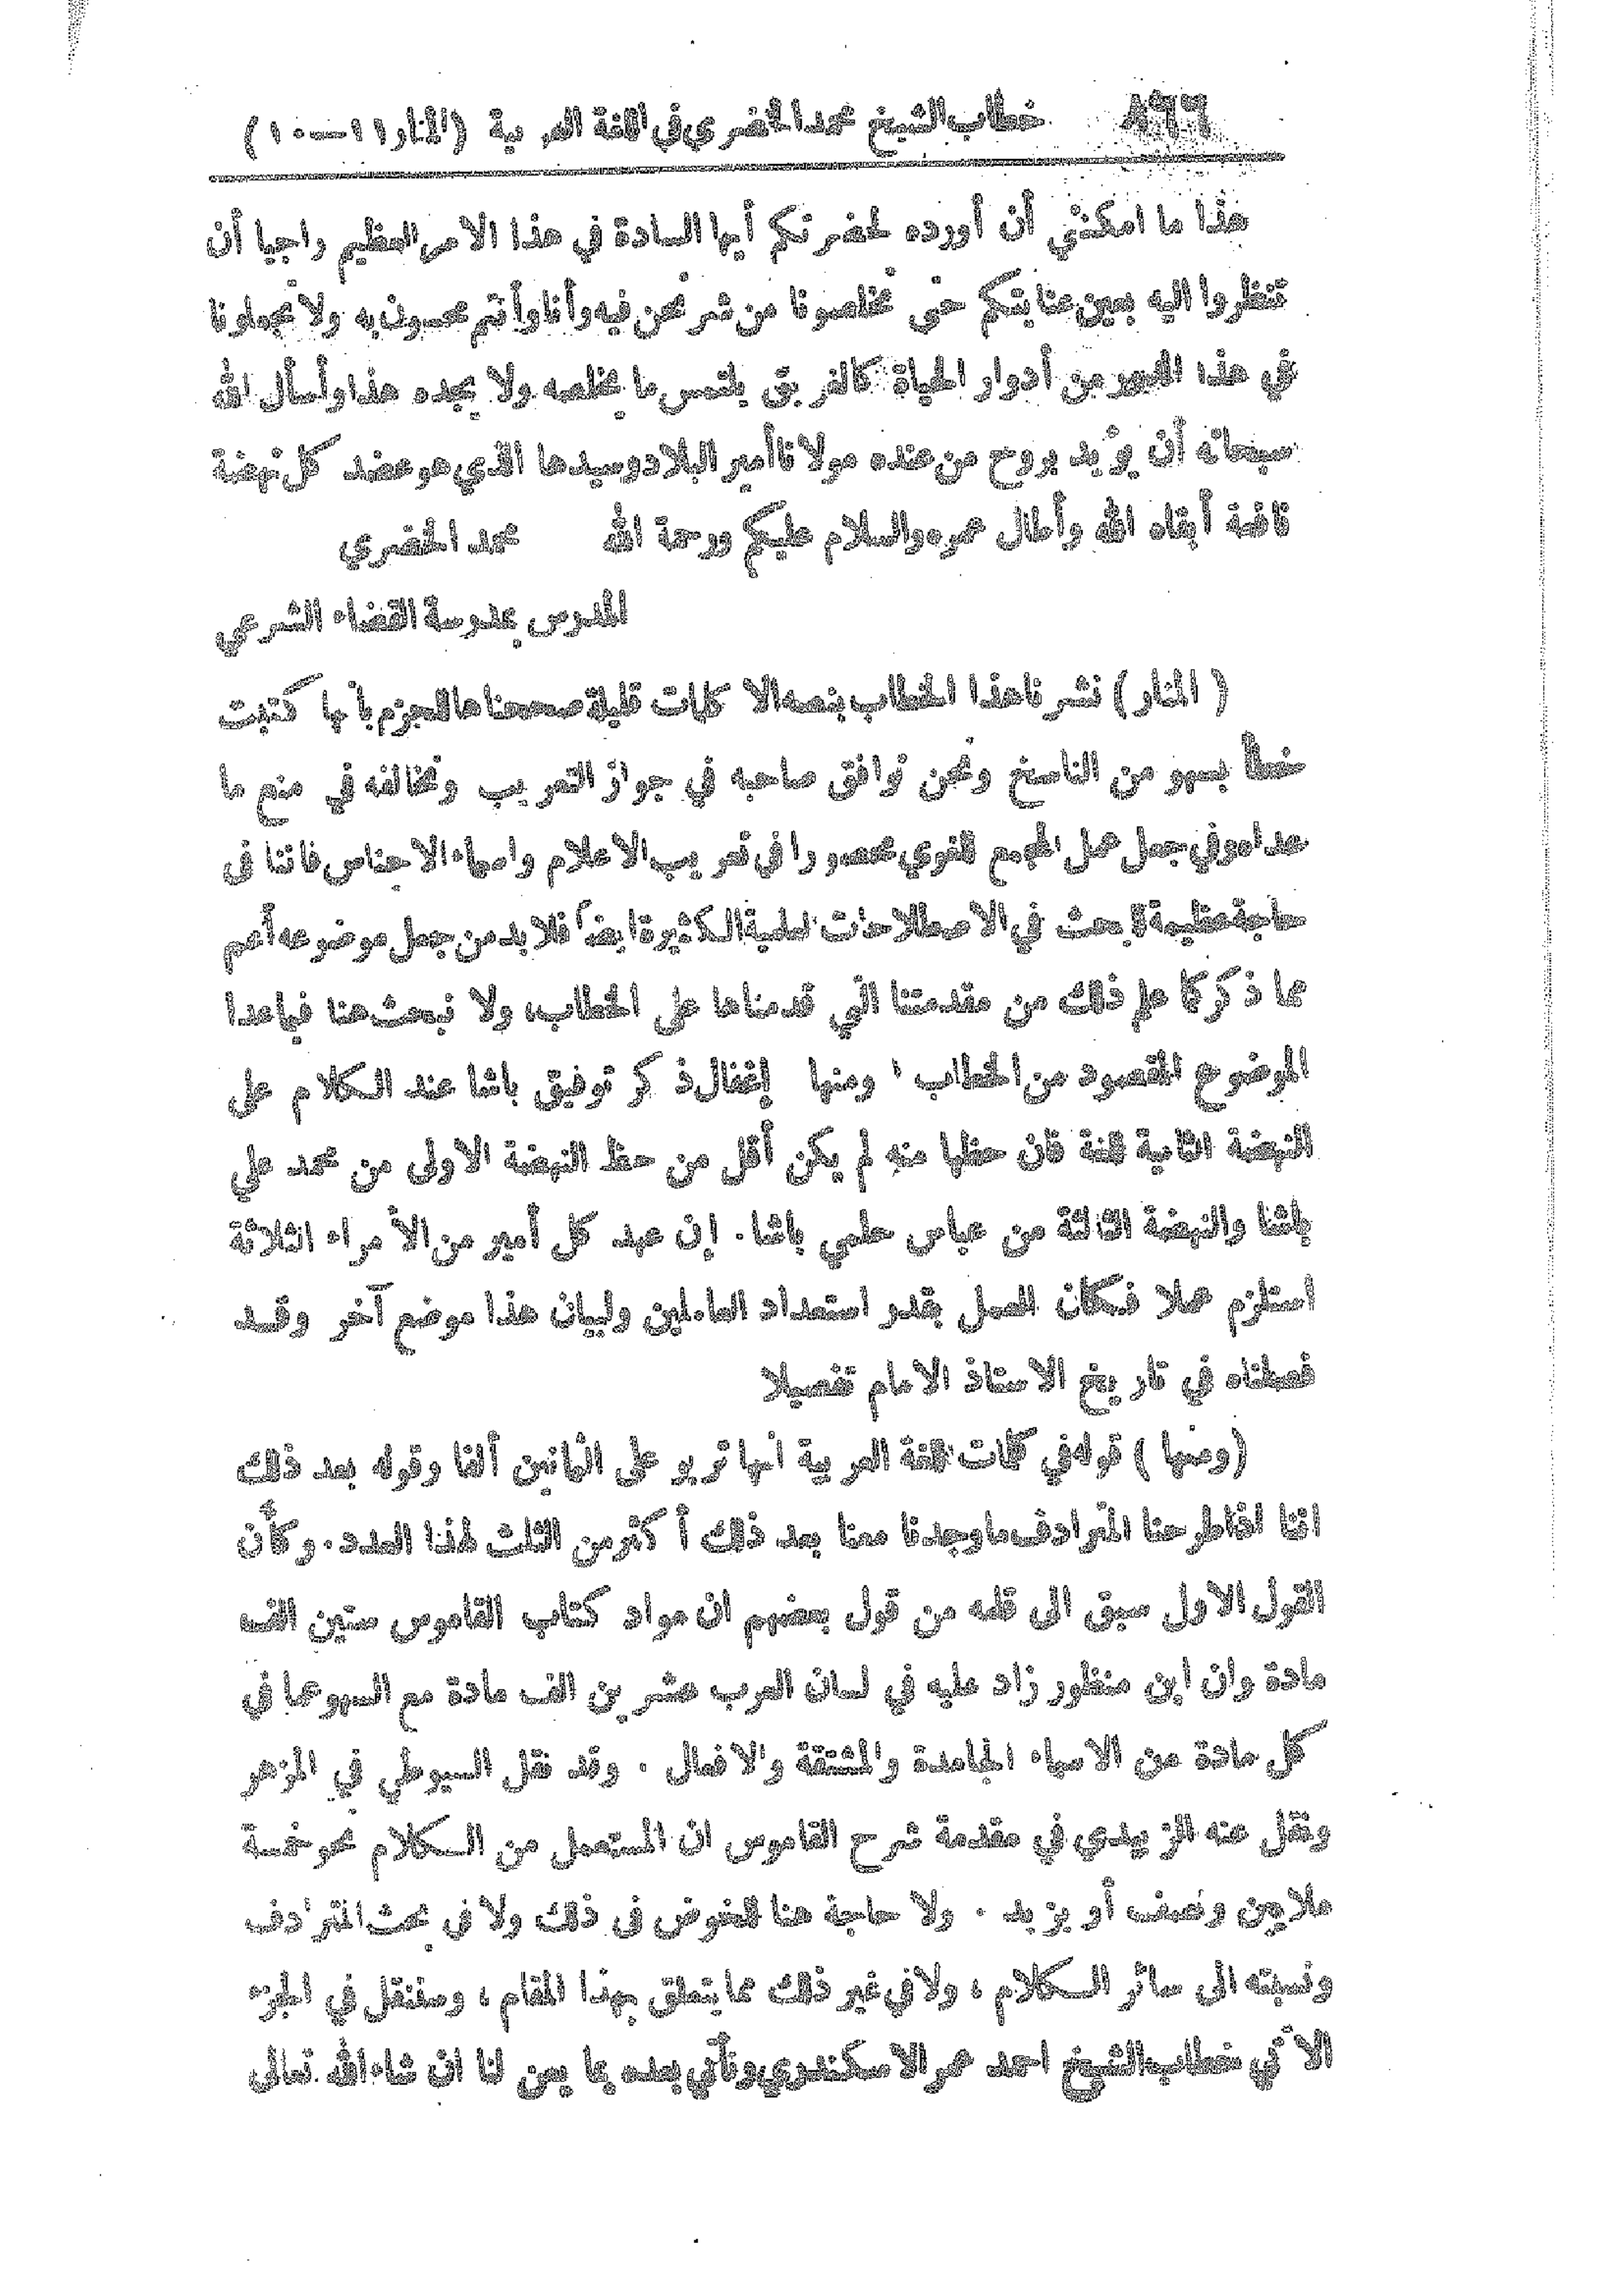 ٨٦٦ خطاب الشيخ محمد الخضري في اللغة العربية (المنار ١١ــ١٠)
هذا ما امكنني أن أورده لحضرتكم أيها السادة في هذا الامر العظيم راجيا أن
تنظروا اليه بعين عنايتكم حتى تخلصونا من شر نحن فيه وأنا وأنتم محسون به ولا تجعلونا
في هذا الدور من أدوار الحياة كالغريق يلتمس ما يخلصه ولا يجده هذا وأسأل الله
سبحانه أن يؤيد بروح من عنده مولانا أمير البلاد وسيدها الذي هو عضد كل نهضة
نافعة أبقاه الله وأطال عمره والسلام عليكم ورحمة الله محمد الخضري
المدرس بمدرسة القضاء الشرعي
( المنار ) نشرنا هذا الخطاب بنصه الا كلمات قليلة صححناها للجزم بأنها كتبت
خطأ بسهو من الناسخ ونحن نوافق صاحبه في جواز التعريب ونخالفه في منع ما
عداه وفي جعل عمل المجمع اللغوي محصورا في تعريب الاعلام واسماء الاجناس فاننا في
حاجة عظيمة للبحث في الاصطلاحات العلمية الكثيرة ايضاً فلا بد من جعل موضوعه أعم
مما ذكر كما علم ذلك من مقدمتنا التي قدمناها على الخطاب، ولا نبحث هنا فيما عدا
الموضوع المقصود من الخطاب ، ومنها إغفال ذكر توفيق باشا عند الكلام على
النهضة الثانية للغة فان حظها منه لم يكن أقل من حظ النهضة الاولى من محمد علي
باشا والنهضة الثالثة من عباس حلمي باشا . إن عهد كل أمير من الأمراء الثلاثة
استلزم عملا فكان العمل بقدر استعداد العاملين ولبيان هذا موضع آخر وقد
فصلناه في تاريخ الاستاذ الامام تفصيلا
(ومنها ) قوله في كلمات اللغة العربية انها تربو على الثمانين ألفا وقوله بعد ذلك
اننا اذا طرحنا المترادف ما وجدنا معنا بعد ذلك أكثر من الثلث لهذا العدد . وكأن
القول الاول سبق الى قلمه من قول بعضهم ان مواد كتاب القاموس ستين الف
مادة وان ابن منظور زاد عليه في لسان العرب عشرين الف مادة مع السهو عما في
كل مادة من الاسماء الجامدة والمشتقة والافعال . وقد نقل السيوطي في المزهر
ونقل عنه الزبيدي في مقدمة شرح القاموس ان المستعمل من الكلام نحو خمسة
ملايين ونصف أو يزيد . ولا حاجة هنا للخوض في ذلك ولا في بحث المترادف
ونسبته الى سائر الكلام ، ولا في غير ذلك مما يتعلق بهذا المقام ، وسننقل في الجزء
الآتي خطاب الشيخ احمد عمر الاسكندري ونأتي بعده بما يعن لنا ان شاء الله تعالى